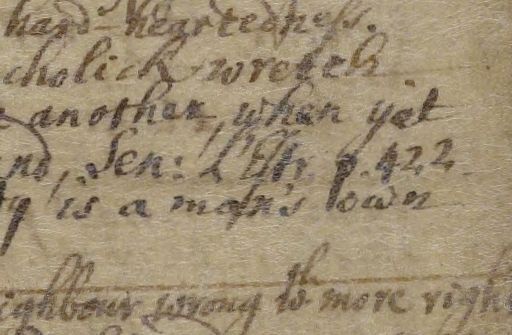 hard-heartedness.
cholick wretch
another, when yet
Sen: L'Estr. p. 422.
is a man's own
neighbour wrong th more right